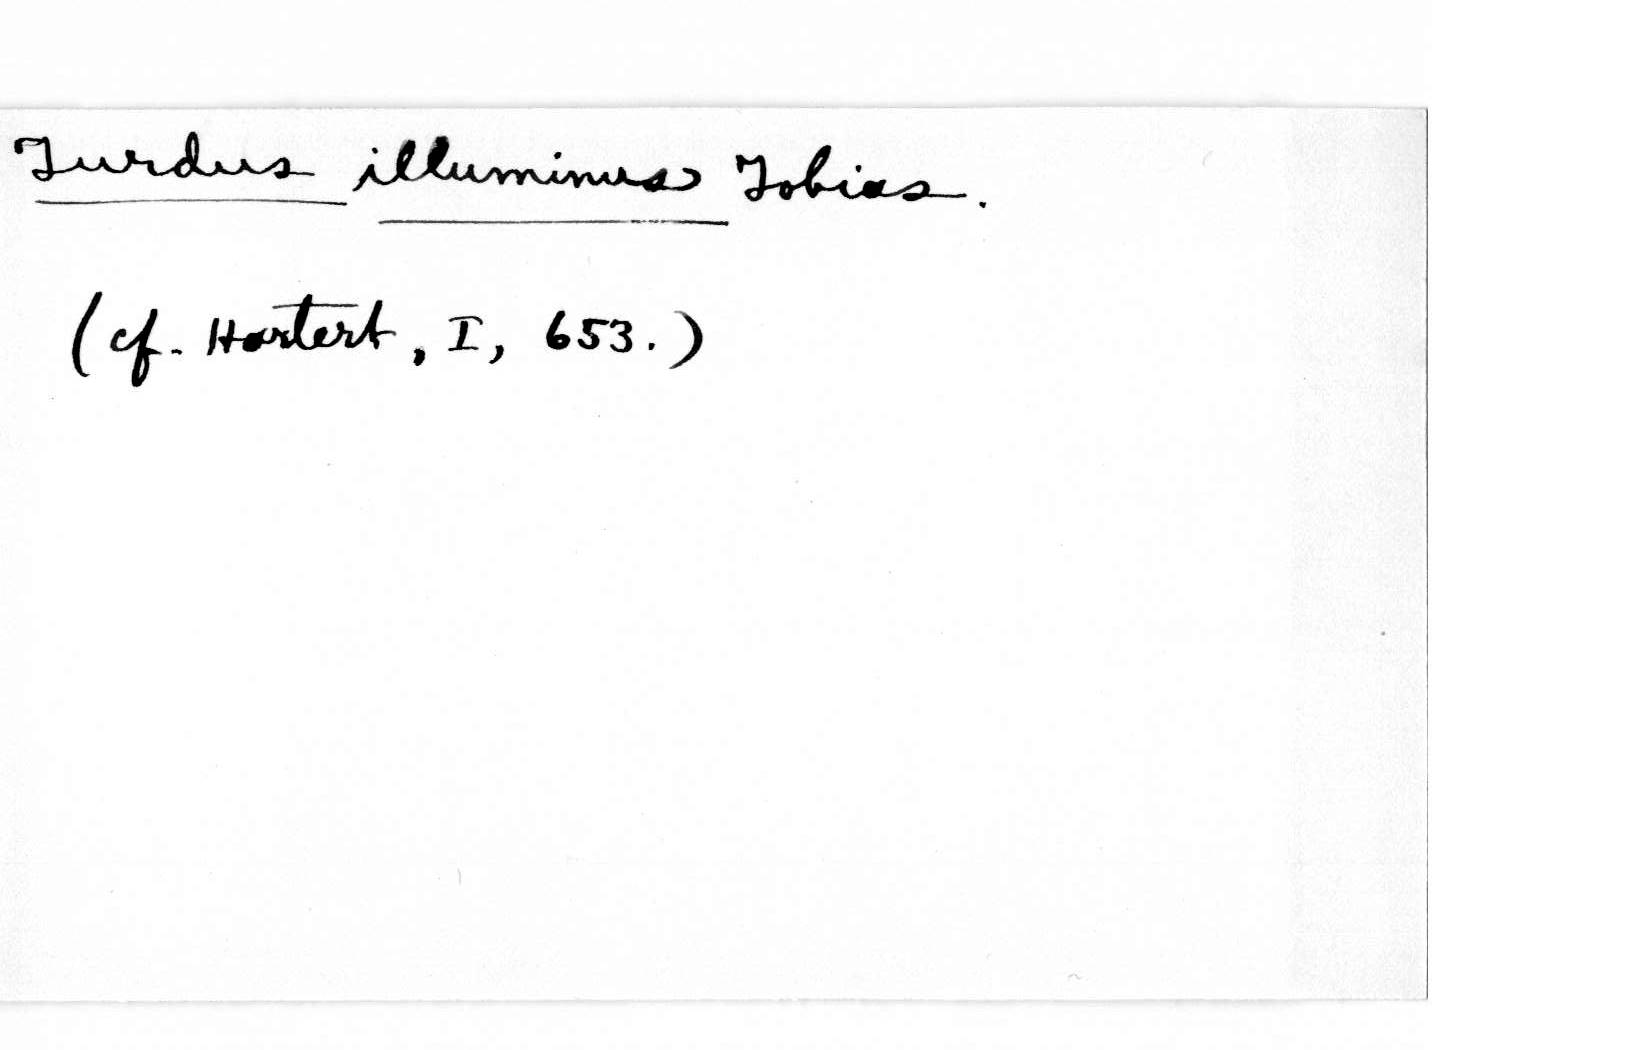 Turdus illuminus Tobias.
(cf. Hartert, I, 653.)